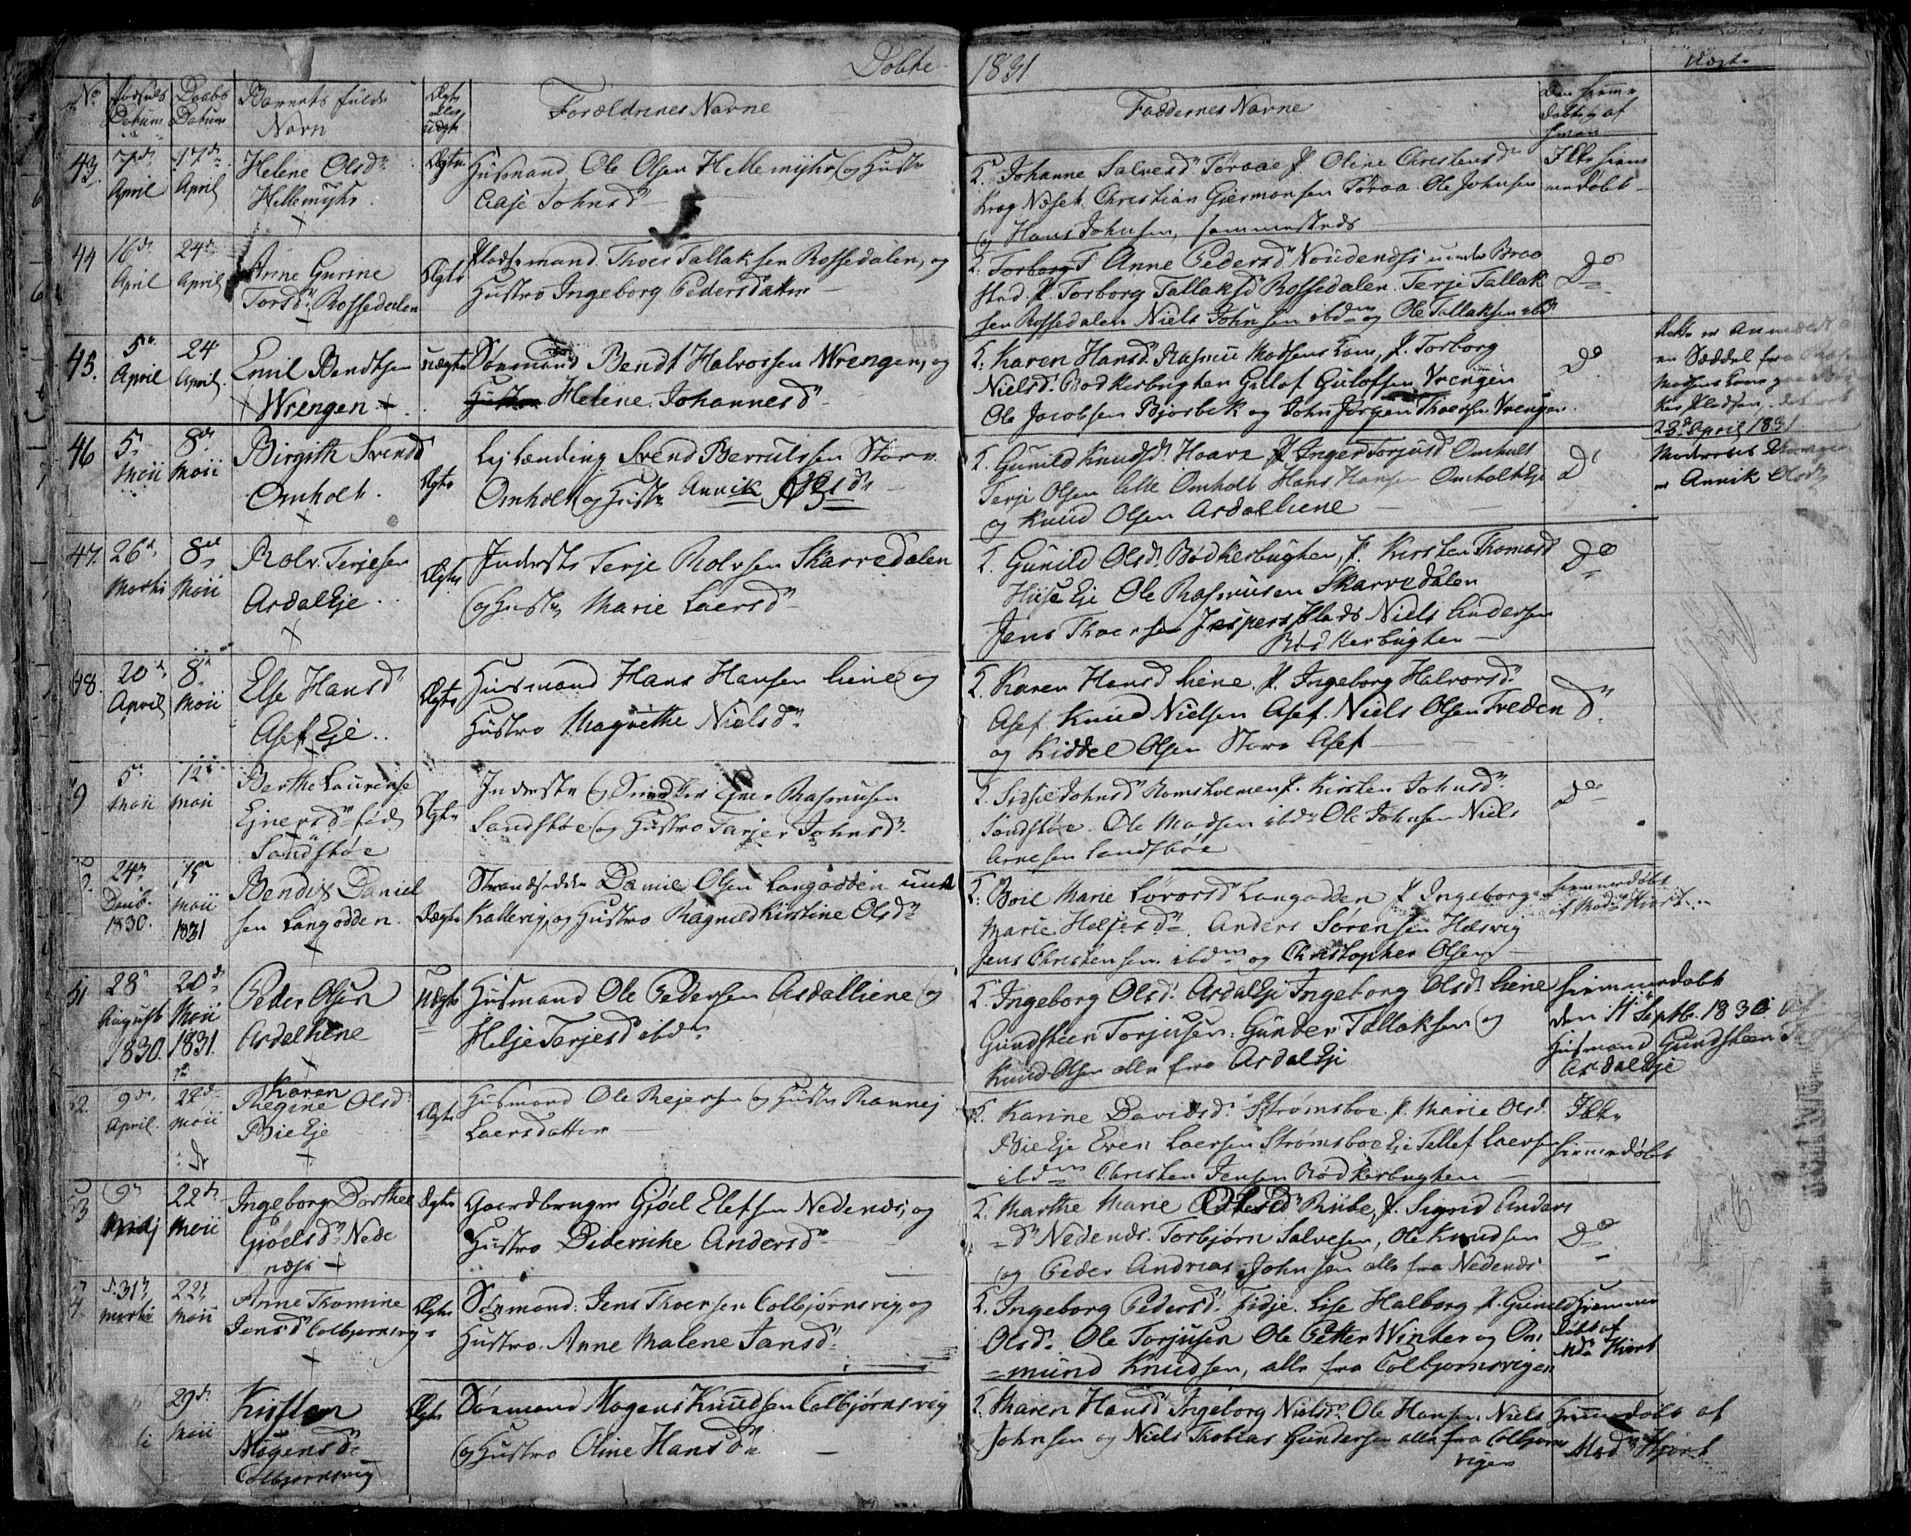 Døbte 1831
No Fødsels Datum Daabs Datum Barnets fulde Navn Ægte eller Uægte Forældrenes Navne Faddernes Navne
43. 7de April 17de April Helene Olsdr Hellemyhr Ægte
Huusmand Ole Olsen Hellemyhr og Hustr
Aase Johnsdr
T. Johanne Salvesdr Toraae J. Oline Christensdr
Krog Næset. Christian Giermonsen Toraa. Ole Johnsen
og Hans Johnsen, sammesteds
Ikke hiemmedøbt
44 16de April 24de April Anne Gurine
Torsdr Rossedalen Ægte
Pladsmand Thoer Tallaksen Rossedalen, og
Hustro Ingeborg Pedersdatter
Anne Pedersdr under Braa
stad J. Torborg Tallaksdr Rossedalen. Terje Tallak
sen Rossedalen Niels Johnsen ibdm og Ole Tallaksen ibd
Do
45. 5te April 24 April. Emil Bendtsen
Wrengen Uægte
Sømand Bendt Halvorsen Wrengen, og
Hustro Helene Johannesdr
T. Karen Hansdr Rasmus Madsens Kone, J. Torborg
Nielsdr Bødkerbugten Gulof Gulofsen Vrengen
Ole Jacobsen Bjorbek og John Jørgen Thoersen Vrengen.
Do
23de April 1831
46 5te Maii 8de Maii Birgith Svendsdr
Omholt. Ægte
Leilænding Svend Berrulfsen Store
Omholt og Hustr Annik Olsdr
T. Gunild Knudsdr Haave J. Inger Torjusdr Omholt
Terje Olsen Lille Omholt Hans Hansen Omholt Eje
og Knud Olsen Asdalhiene
Do
Annik Olsdr
47. 26de Martii 8de Maii Rolv Terjesen
Asdal Eje Ægte
Inderste Terje Rolvsen Skarredalen
og Hustr Marie Laersdr
T. Gunild Olsdr Bødkerbugten, J. Kirsten Thomasdr
Huse Eje Ole Rasmusen Skarredalen
Jens Thoersen Jespersplads Niels Andersen
Bødkerbugten
Do
48. 20de April 8de Maii Else Hansdr
Asef Eje Ægte
Huusmand Hans Hansen Liene og
Hustro Magrethe Nielsdr
T. Karen Hansdr Liene J. Ingeborg Halvorsdr
Asef. Knud Nielsen Asef. Niels Olsen Treden
og Kiddel Olsen Store Asef
Do
9 5te Maii 12te Maii Berthe Laurense
Ejnersdr
Sandstøe Ægte
Inderste og Ejner Rasmusen
Sandstøe og Hustro Tarjer Johnsdr
T. Sidsel Johnsdr Romsholmen J. Kirsten Johnsdr
Sandstøe. Ole Madsen ibdm Ole Johnsen Niels
Arnesen Sandstøe
Do
24de Decb. 1830. 15de Maii 1831 Bendix Daniel
sen Langodden. Uægte
Strandsidder Daniel Olsen Langodden
Kallevig, og Hustro Ragnild Kirstine Olsdr
T. Marie Lovorsdr Langodden J. Ingeborg
Marie Helgesdr. Anders Sørensen Hæsvig
Jens Christensen ibdm og Christopher Olsen
hiemmedøbt af Mad. Hjort
51 28de Augusti 1830. 20de Maii 1831. Peder Olsen
Asdalhiene Uægte
Huusmand Ole Pedersen Asdalhiene og
Helje Terjesdr ibdm
T. Ingeborg Olsdr Asdal Eje Ingeborg Olsdr Liene
Gundsteen Torjusen. Gunder Tallaksen og
Knud Olsen alle fra Asdal Eje
hiemmedøbt
den 11te Septb. 1830 af
Huusmand Gundsteen
Asdal Eje
52. 9de April. 22de Maii Karen
Regine Olsdr
Bie Eje Ægte
Huusmand Ole Rejersen og Hustr Rannej
Laersdatter
T. Karine Davidsdr Strømsboe. J. Marie Olsdr
Bie Eje Even Laersen Strømsboe Eje Tellef Laersen
ibdm Christen Jensen Bødkerbugten
Ikke hiemmedøbt
53 9de April 22de Maii Ingeborg Dorthea
Gjøelsdr Nede
næs Ægte
Gaardbruger Gjøel Elefsen Nedenæs, og
Hustro Diderikke Andersdr
T. Marthe Marie Rübe, J. Sigrid Anders
dr Nedenæs. Torbjørn Salvesen, Ole Knudsen
og Peder Andreas Johnsen alle fra Nedenæs
Do
54 31te Martii 22de Maii Anne Thomine
Jensdr Colbjørnsvig Ægte
Sømand Jens Thoersen Colbjørnsvig, og
Hustro Anne Malene Jansdr
T. Ingeborg Pedersdr Fidje. Lise Halborg J. Gunild
Olsdr. Ole Torjusen Ole Petter Winter og On
mund Knudsen, alle fra Colbjørnsvigen
hiemmedøbt af Mda Hjort
29de Maii Kirsten
Mogensdr
Colbjørnsvig Ægte
Sømand Mogens Knudsen Colbjørnsvig
og Hustro Oline Hansdr
T. Maren Hansdr Ingeborg Nielsdr. Ole Hansen. Niels
Johnsen og Niels Thobias Gundersen alle fra Colbjørns
vigen
Hiemmedøbt af
Mad. Hjort